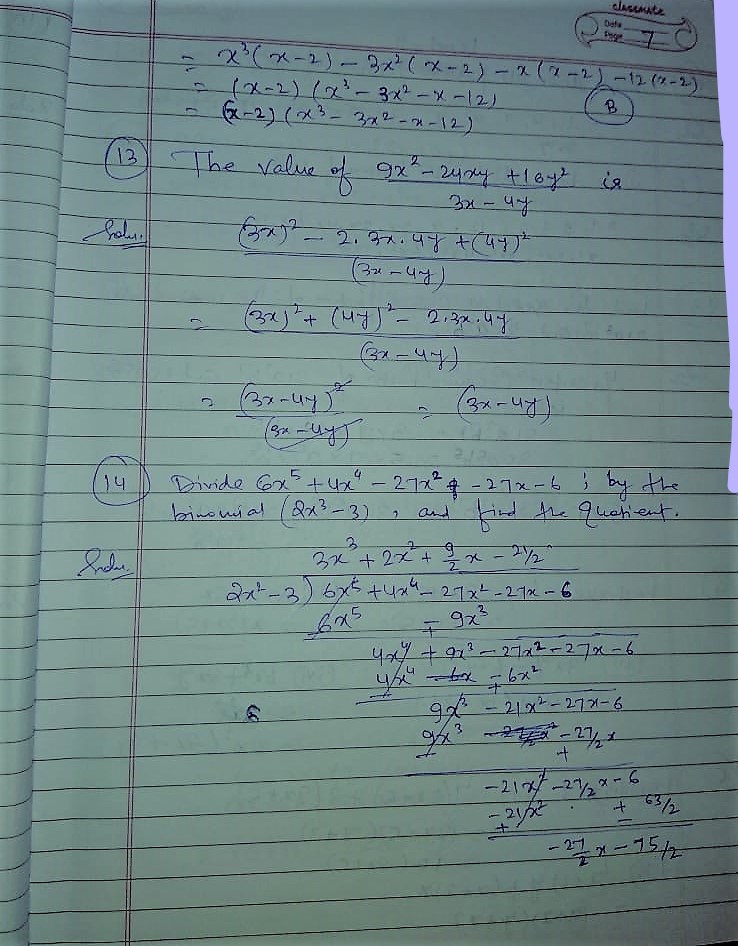 classmate
Date
Page 7
= x³(x-2) - 3x²(x-2) - x(x-2) -12(x-2)
= (x-2) (x³ - 3x² - x -12)
= (x-2) (x³ - 3x² - x -12)
B
13 The value of (9x² - 24xy + 16y²)/(3x - 4y) is
Solu.
((3x)² - 2.3x.4y + (4y)²)/(3x - 4y)
= ((3x)² + (4y)² - 2.3x.4y)/(3x - 4y)
= (3x-4y)²/(3x-4y) = (3x-4y)
14 Divide 6x⁵ + 4x⁴ - 27x² - 27x - 6 ; by the
binomial (2x³ - 3), and find the Quotient.
Solu.
3x³ + 2x² + 9/2 x - 21/2
2x² - 3) 6x⁵ + 4x⁴ - 27x² - 27x - 6
6x⁵ - 9x³
- +
4x⁴ + 9x³ - 27x² - 27x - 6
4x⁴ - 6x²
- +
9x³ - 21x² - 27x - 6
9x³ - 27/2 x
- +
-21x² - 27/2 x - 6
-21x² + 63/2
+ -
-27/2 x - 75/2